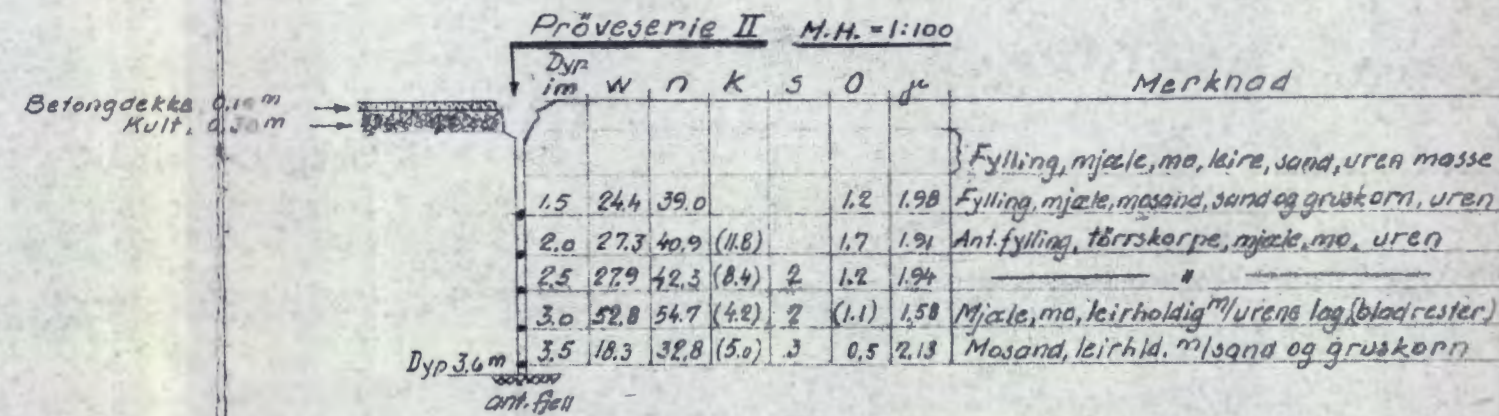 Pröveserie II M.H. = 1:100
Dyp im w n k s O γ Merknad
Betongdekke 0,10 m
Kult, 0,30 m
Fylling, mjæle, mo, leire, sand, uren masse
1.5 24.4 39.0 1.2 1.98 Fylling, mjæle, mosand, sand og gruskorn, uren
2.0 27.3 40.9 (11.8) 1.7 1.91 Ant. fylling, törrskorpe, mjæle, mo, uren
2.5 27.9 42.3 (8.4) 2 1.2 1.94 — " —
3.0 52.8 54.7 (4.2) 2 (1.1) 1.58 Mjæle, mo, leirholdig m/urene lag (bladrester)
3.5 18.3 32.8 (5.0) 3 0.5 2.13 Mosand, leirhld. m/sand og gruskorn
Dyp 3.6 m
ant. fjell